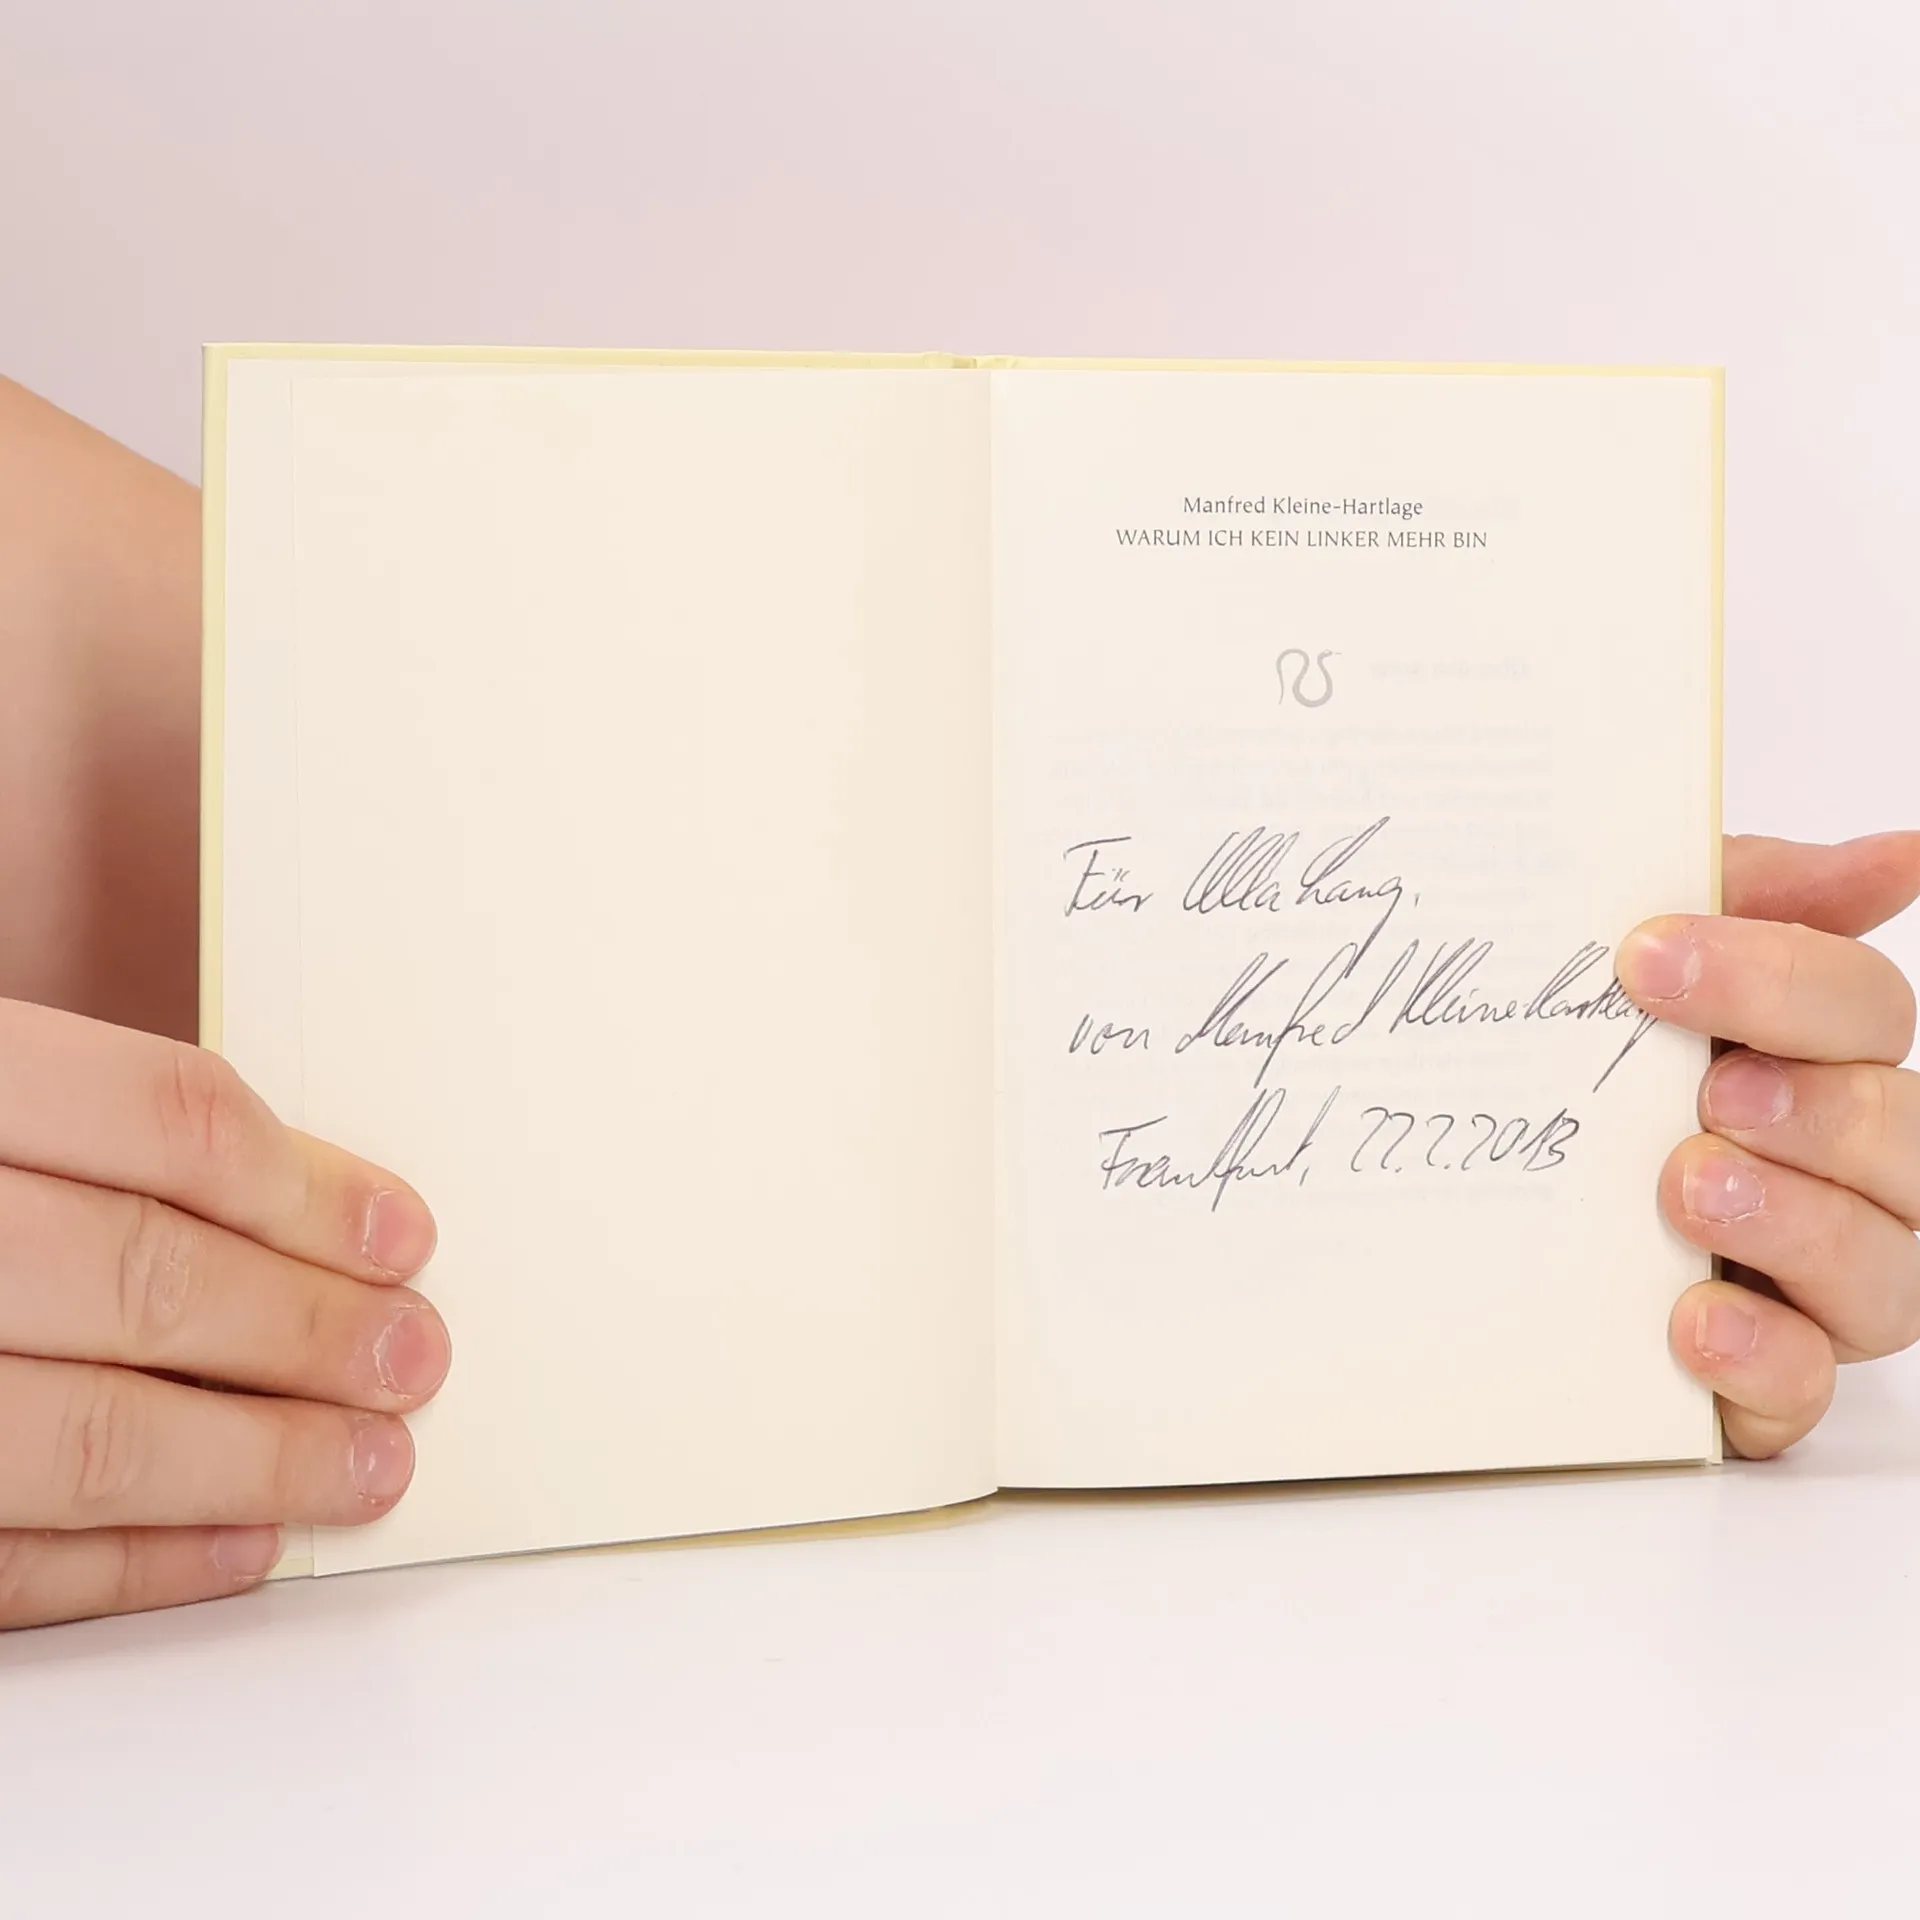 Manfred Kleine-Hartlage
WARUM ICH KEIN LINKER MEHR BIN
Für Ulla Lang,
von Manfred Kleine-Hartlage
Frankfurt, 22.2.2013